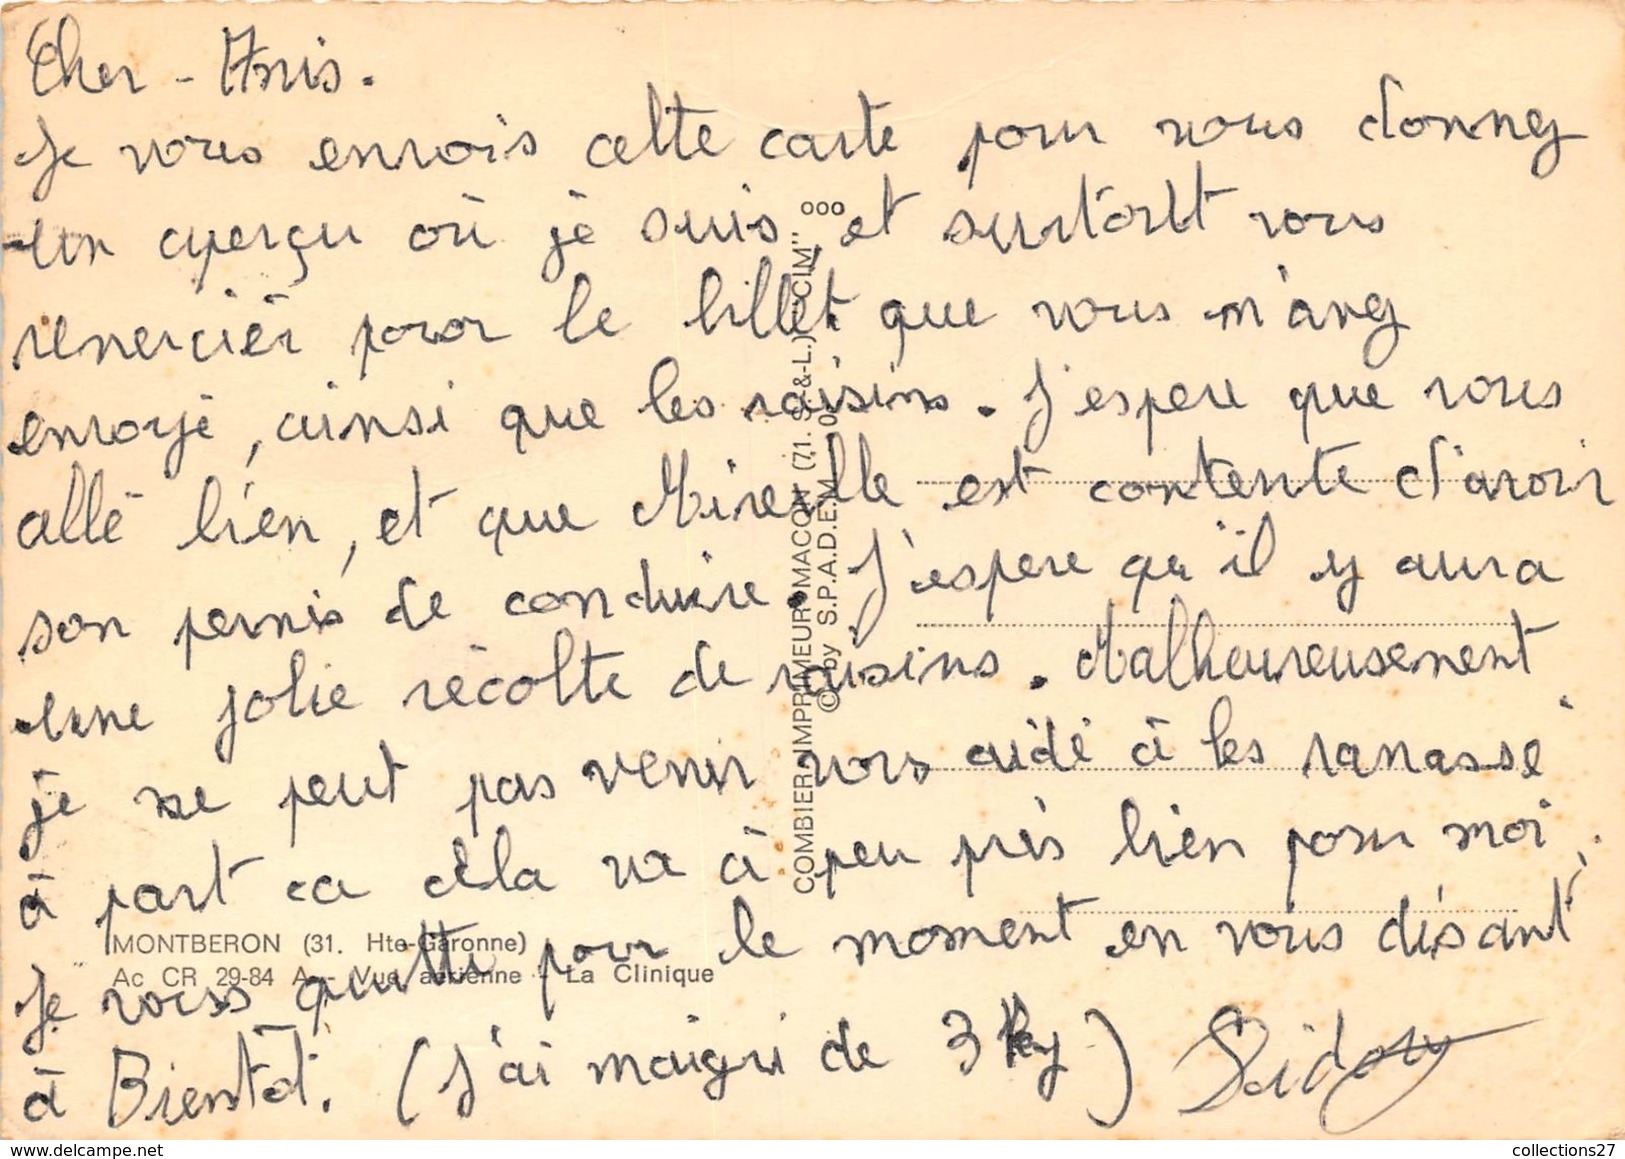 Cher - Amis.
Je vous envois cette carte pour vous donnez
un aperçu où je suis, et surtout vous
remercier pour le billet que vous m'avez
envoyé, ainsi que les raisins. J'espere que vous
allé bien, et que Mireille est contente d'avoir
son permis de conduire. J'espere qu'il y aura
une jolie récolte de raisins. Malheureusement
je ne peut pas venir vous aidé à les ramassé.
à part ca cela va à peu près bien pour moi.
Je vous quitte pour le moment en vous disant
à Bientôt. (J'ai maigri de 3 Kg)
MONTBERON (31. Hte-Garonne)
Ac CR 29-84 A - Vue aérienne - La Clinique
COMBIER IMPRIMEUR MACON (71. S.-&-L.) "CIM"
© by S.P.A.D.E.M.
ooo
collections27